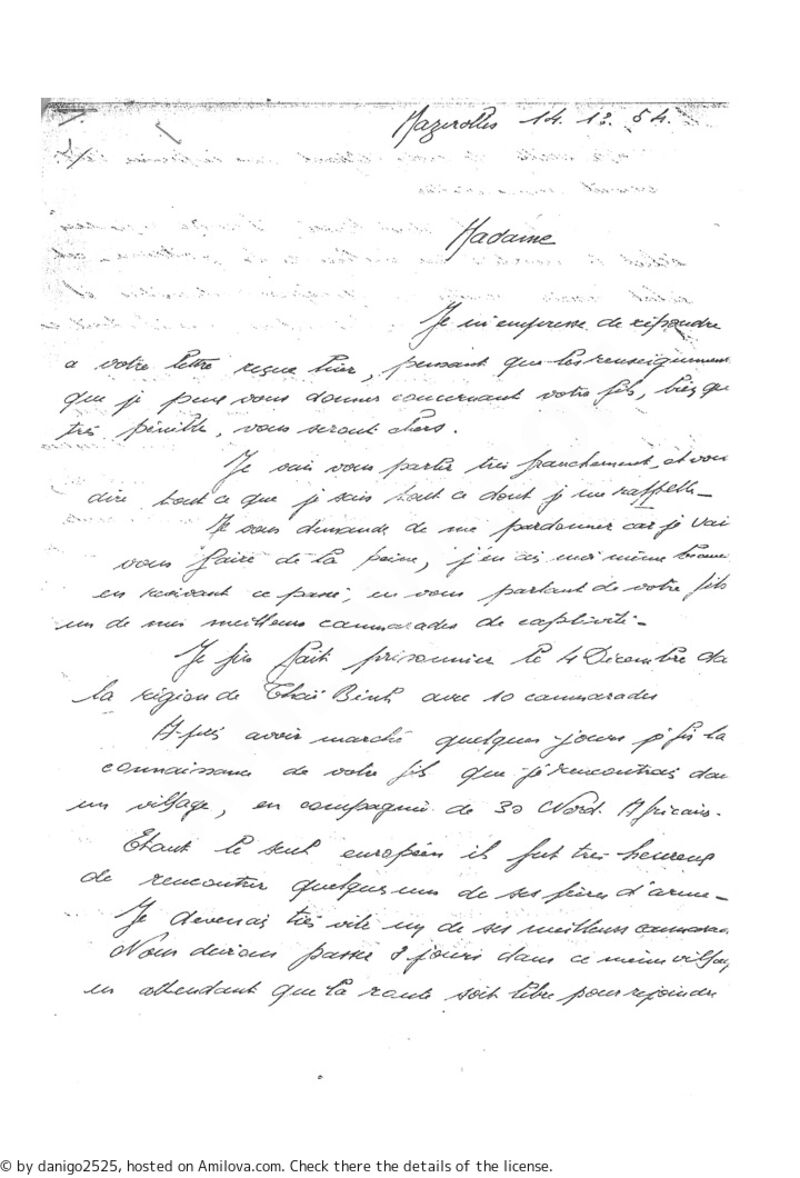 Mazerolles 14.12.54.
Madame
Je m'empresse de répondre
a votre lettre reçue hier, pensant que les renseignement
que je peux vous donner concernant votre fils, bien que
très pénible, vous seront chers.
Je vais vous parler très franchement, et vou
dire tout ce que je sais tout ce dont je me rappelle_
Je vous demande de me pardonner car je vai
vous faire de la peine, j'en ai moi même
en ce passé, en vous parlant de votre fils
un de mes meilleurs camarades de captivité_
Je fus fait prisonnier le 4 Décembre da
la région de Thaï Binh avec 10 camarades
Après avoir marché quelques jours je fis la
connaissance de votre fils que je rencontrai dan
un village, en compagnie de 30 Nord. Africains.
Etant le seul européen il fut très heureux
de rencontrer quelques uns de ses frères d'arme_
Je devenais très vite un de ses meilleurs camara
Nous devions passer jours dans ce même villag
en attendant que la route soit libre pour rejoindre
© by danigo2525, hosted on Amilova.com. Check there the details of the license.